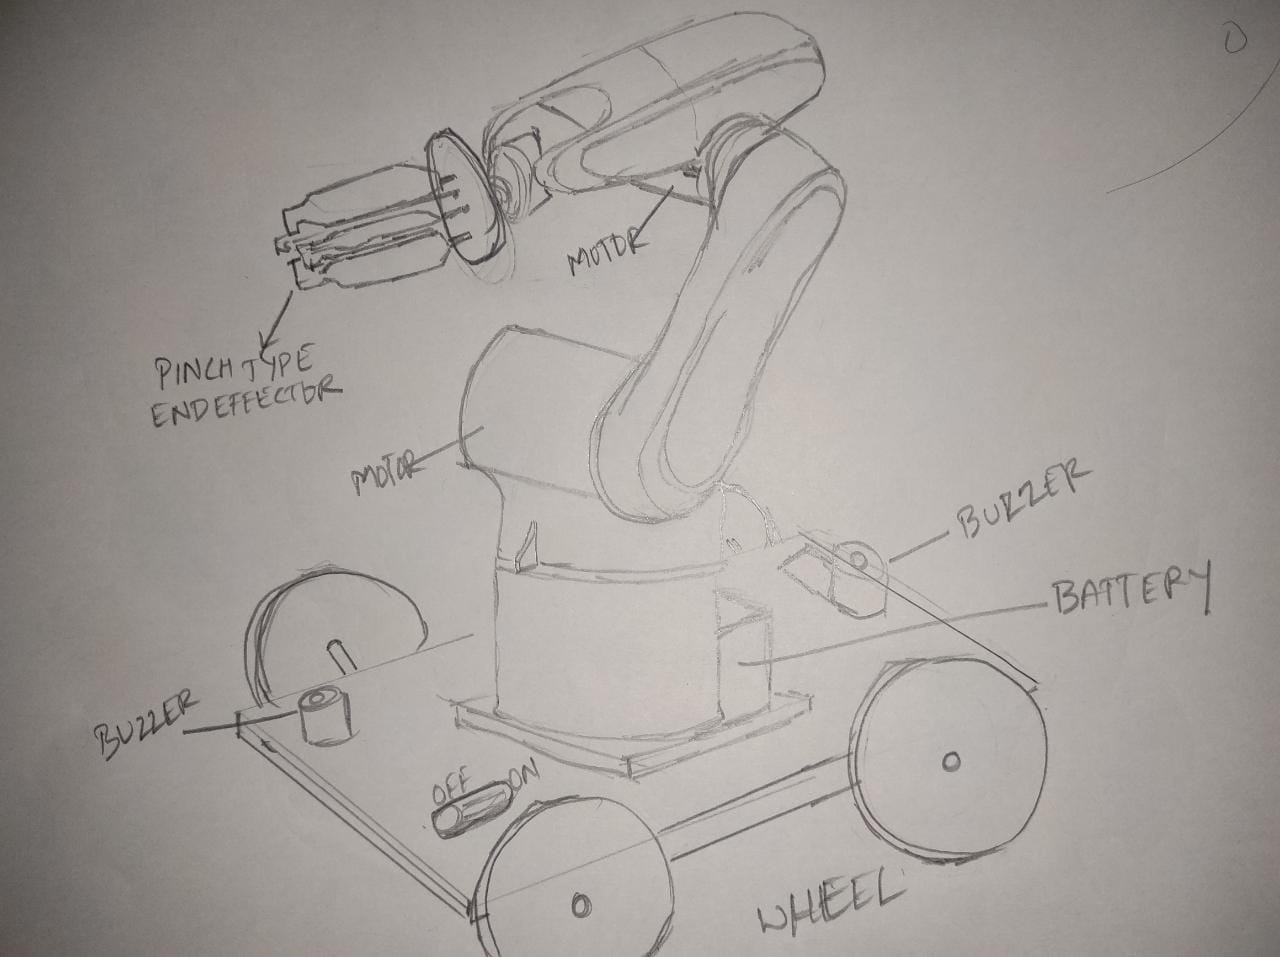 MOTOR
PINCH TYPE
ENDEFFECTOR
MOTOR
BUZZER
BATTERY
BUZZER
OFF ON
WHEEL